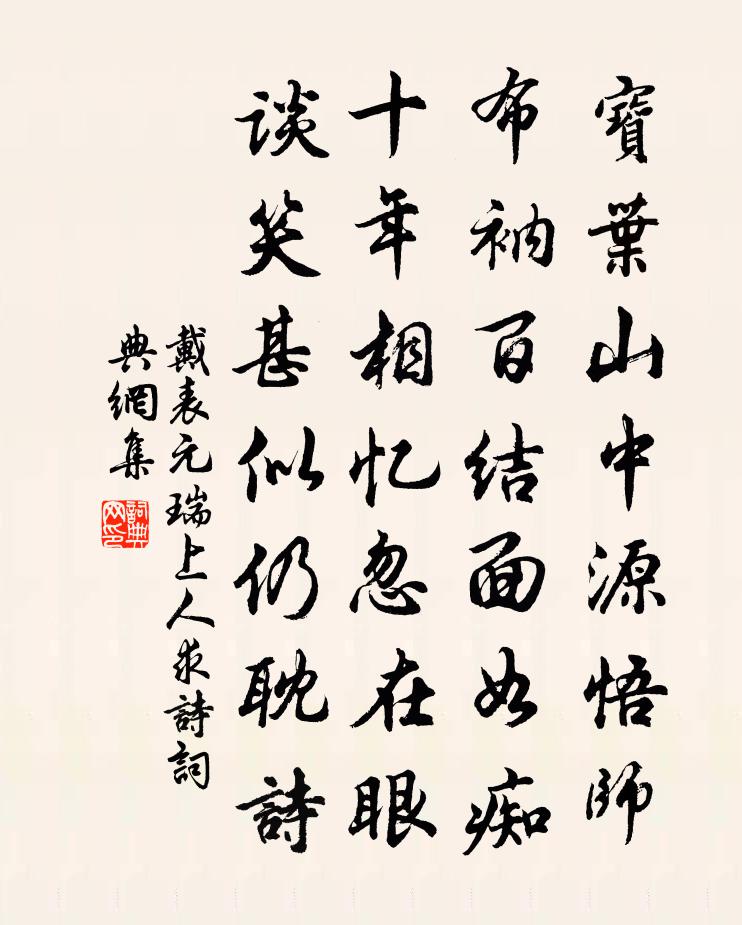 寶葉山中源悟師
布衲百结面如痴
十年相忆忽在眼
谈笑甚似仍耽詩
戴表元瑞上人求詩詞
典網集
詞典网印